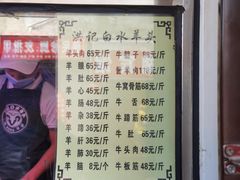 洪记白水羊头
羊头肉65元/斤
羊腱65元/斤
羊肚65元/斤
羊心45元/斤
羊肠48元/斤
羊杂38元/斤
羊蹄35元/斤
羊肝38元/斤
羊肺30元/斤
羊脑8元/个
牛腱子68元/斤
酱羊肉110元/斤
牛窝骨筋68元/斤
牛舌68元/斤
牛蹄筋45元/斤
牛肚65元/斤
牛头肉48元/斤
牛板筋48元/斤